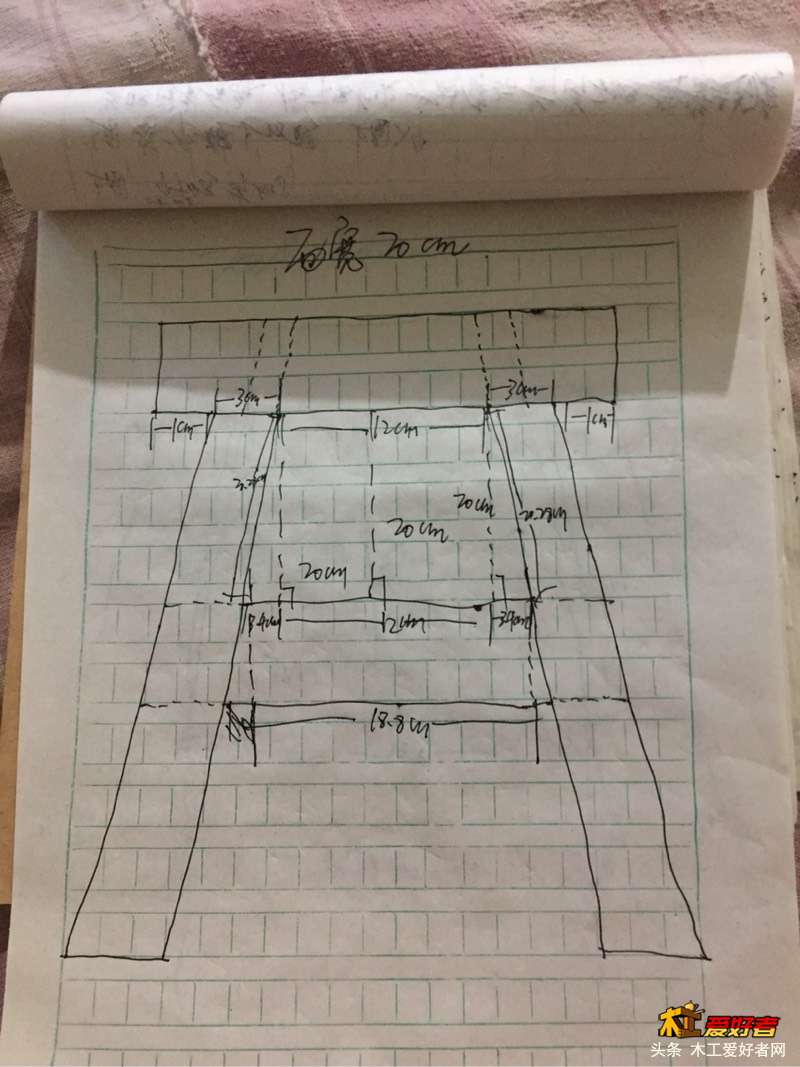 面宽 20cm
3cm 3cm
1cm 12cm 1cm
20cm 20.28cm
20cm
20cm
3.4cm 12cm 3.4cm
18.8cm
木工爱好者
头条 木工爱好者网